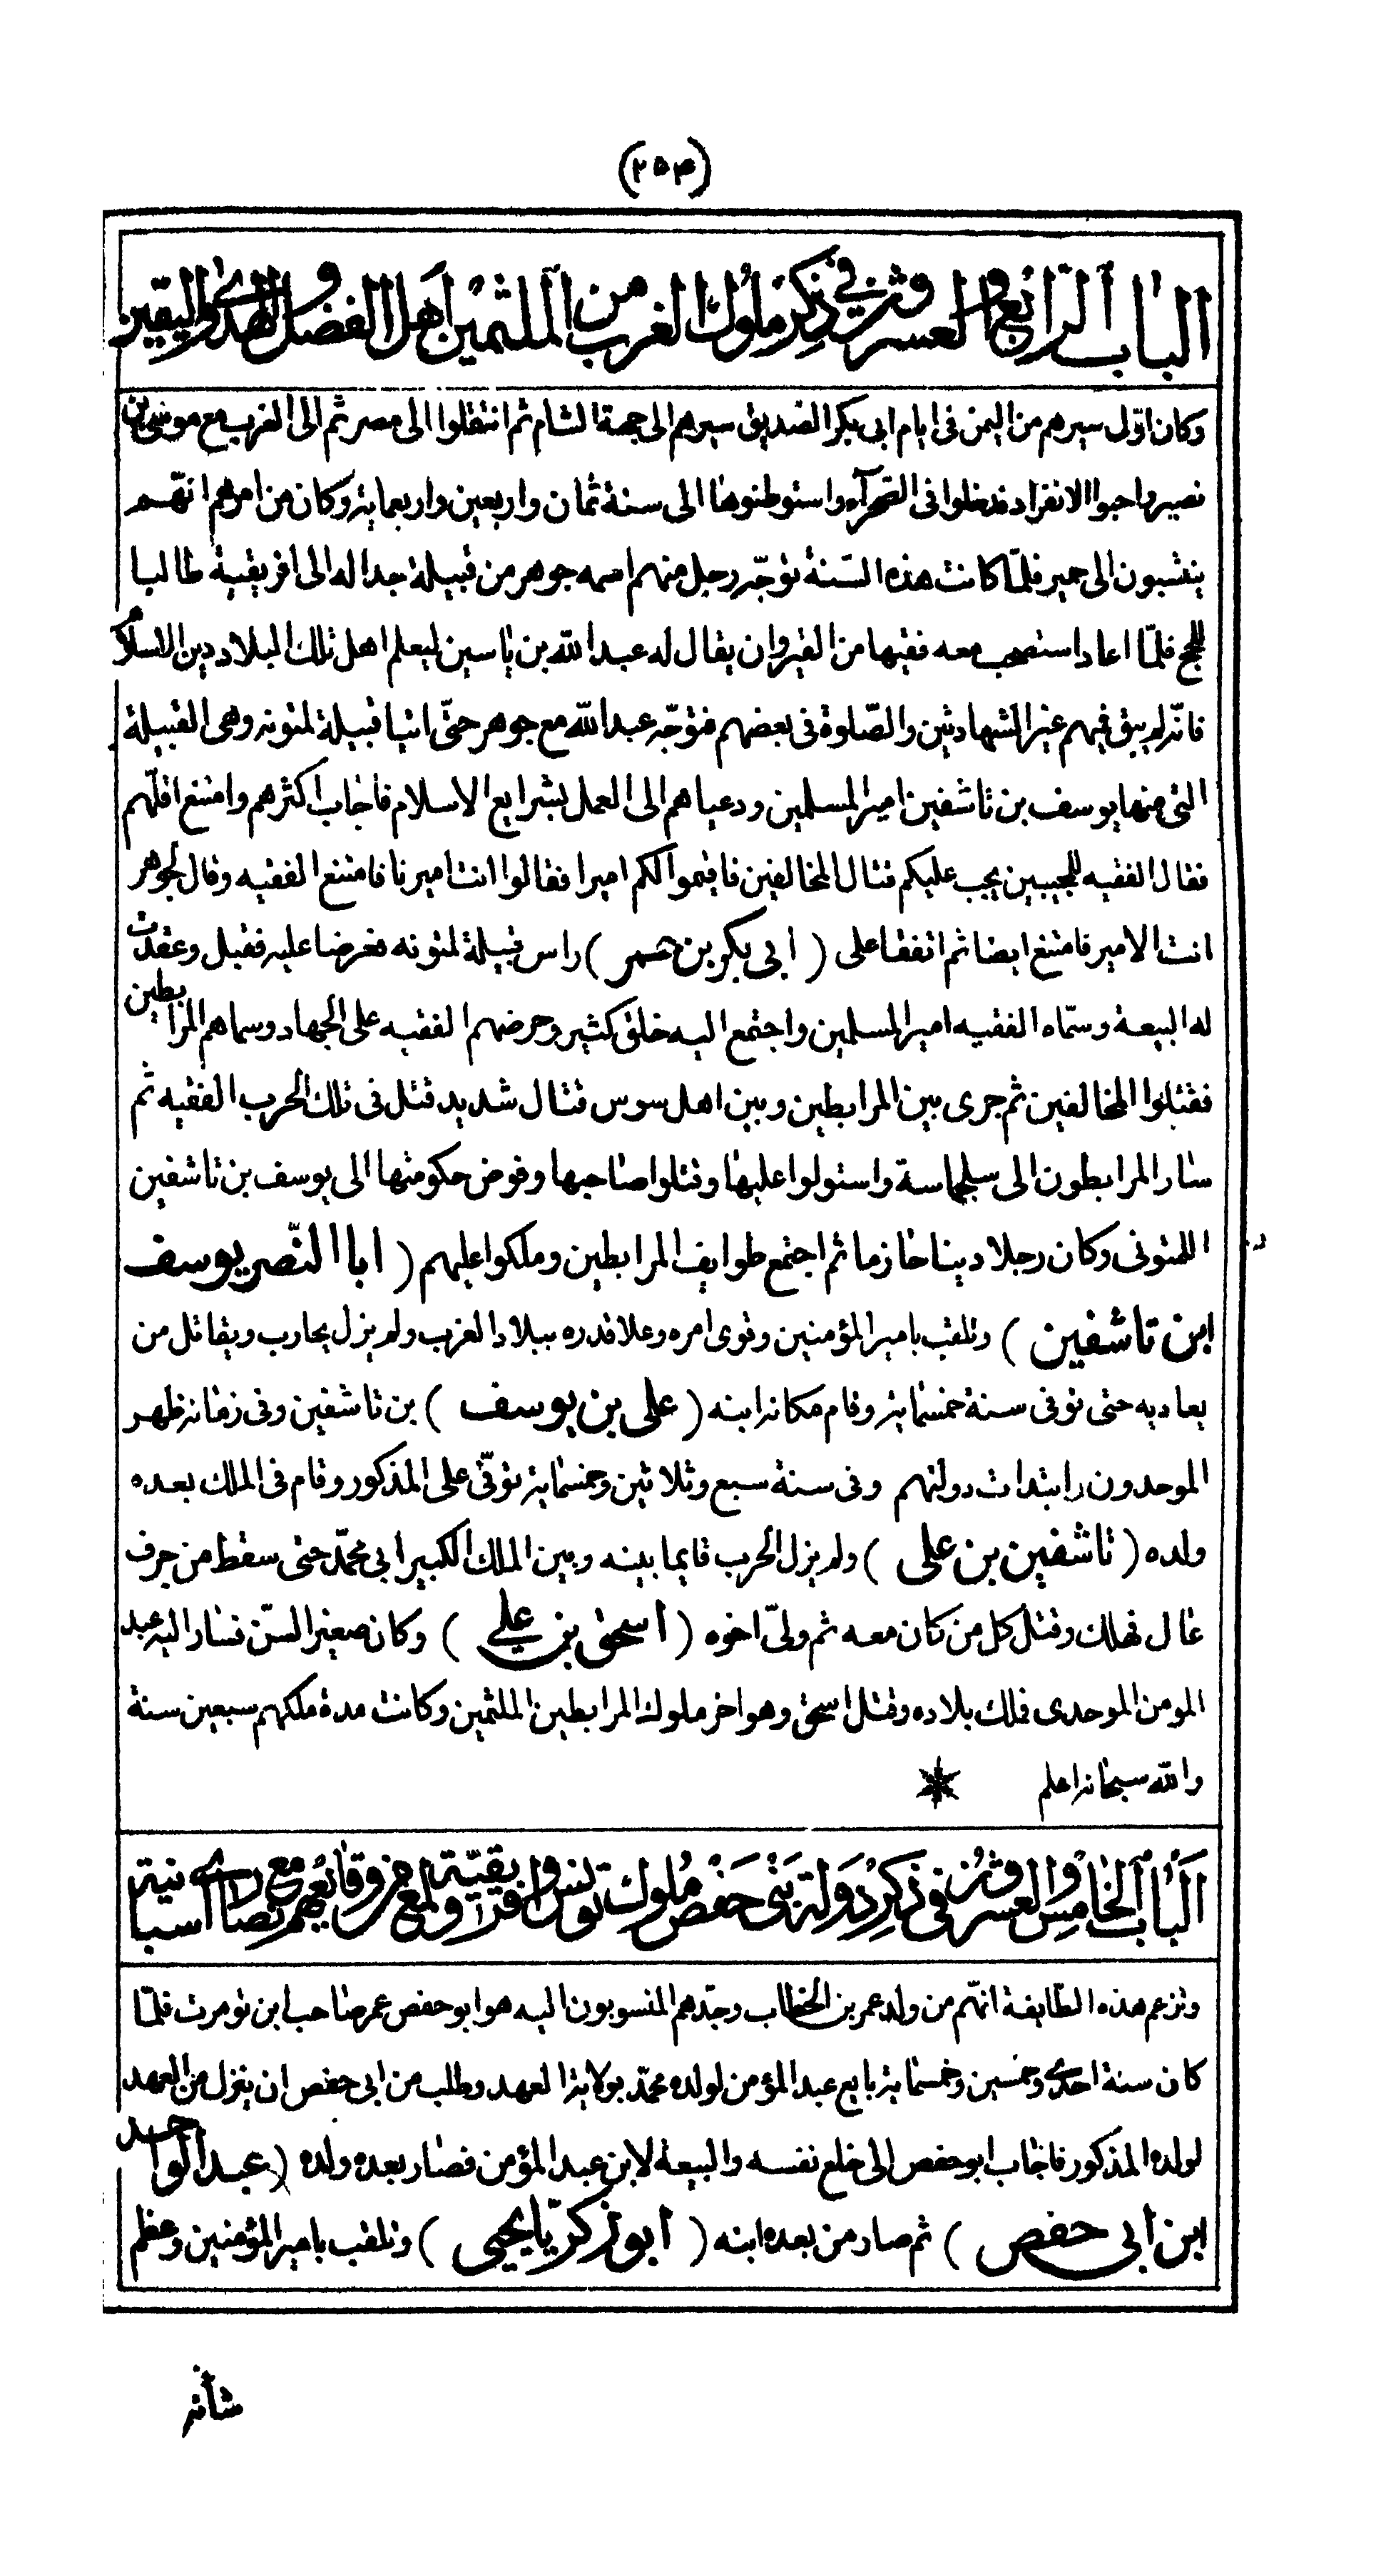 (٢٥٤)
الباب الرابع والعشرون في ذكر ملوك الغرب من الملثمين اهل الفضل والهدى واليقين
وكان اوّل سيرهم من اليمن فى ايام ابى بكر الصديق سيرهم الى جهة الشام ثم انتقلوا الى مصر ثم الى الغرب مع موسى بن
نصير واحبوا الانفراد فدخلوا فى الصّحرآء واستوطنوها الى سنة ثمان واربعين واربعماية وكان من امرهم انّهم
ينتسبون الى حمير فلمّا كانت هذه السّنة توجّه رجل منهم اسمه جوهر من قبيلة جداله الى افريقية طالبا
للحج فلمّا اعاد استصحب معه فقيها من القيروان يقال له عبد الله بن ياسين ليعلم اهل تلك البلاد دين الاسلام
فانّه لم يبق فيهم غير الشهادتين والصّلوة فى بعضهم فتوجّه عبد الله مع جوهر حتّى اتيا قبيلة لمتونه وهى القبيلة
التى منها يوسف بن تاشفين امير المسلمين ودعياهم الى العمل بشرايع الاسلام فاجاب اكثرهم وامتنع اقلّهم
فقال الفقيه للمجيبين يجب عليكم قتال المخالفين فاقيموا لكم اميرا فقالوا انت اميرنا فامتنع الفقيه وقال لجوهر
انت الامير فامتنع ايضا ثم اتفقا على (ابى بكر بن عمر) راس قبيلة لمتونه فعرضا عليه فقبل وعقدت
له البيعة وسمّاه الفقيه امير المسلمين واجتمع اليه خلق كثير وحرضهم الفقيه على الجهاد وسماهم المرابطين
فقتلوا المخالفين ثم جرى بين المرابطين وبين اهل سوس قتال شديد قتل فى تلك الحرب الفقيه ثم
سار المرابطون الى سلجماسة واستولوا عليها وقتلوا صاحبها وفوض حكومتها الى يوسف بن تاشفين
اللمتونى وكان رجلا دينا حازما ثم اجتمع طوايف المرابطين وملكوا عليهم (ابا النّصر يوسف
ابن تاشفين) وتلقب بامير المؤمنين وقوى امره وعلا قدره ببلاد الغرب ولم يزل يحارب ويقاتل من
يعاديه حتى توفى سنة خمسماية وقام مكانه ابنه (على بن يوسف) بن تاشفين وفى زمانه ظهر
الموحدون وابتدات دولتهم وفى سنة سبع وثلاثين وخمسماية توفّى على المذكور وقام فى الملك بعده
ولده (تاشفين بن على) ولم يزل الحرب قايما بينه وبين الملك الكبير ابى محمّد حتى سقط من جرف
عال فهلك وقتل كل من كان معه ثم ولىّ اخوه (اسحق بن على) وكان صغير السّن فسار اليه عبد
المومن الموحدى فملك بلاده وقتل اسحق وهو اخر ملوك المرابطين الملثمين وكانت مدة ملكهم سبعين سنة
والله سبحانه اعلم
الباب الخامس والعشرون فى ذكر دولة بنى حفص ملوك تونس وافريقية ولمع من وقائعهم مع نصارى اسبانية
وتزعم هذه الطّايفة انّهم من ولد عمر بن الخطاب وجدّهم المنسوبون اليه هو ابو حفص عمر صاحب ابن تومرت فلمّا
كان سنة احدى وخمسين وخمسماية بايع عبد المؤمن لولده محمّد بولاية العهد وطلب من ابى حفص ان ينزل من العهد
لولده المذكور فاجاب ابو حفص الى خلع نفسه والبيعة لابن عبد المؤمن فصار بعده ولده (عبد الواحد
ابن ابى حفص) ثم صار من بعده ابنه (ابو زكريّا يحيى) وتلقب بامير المؤمنين وعظم
شانه